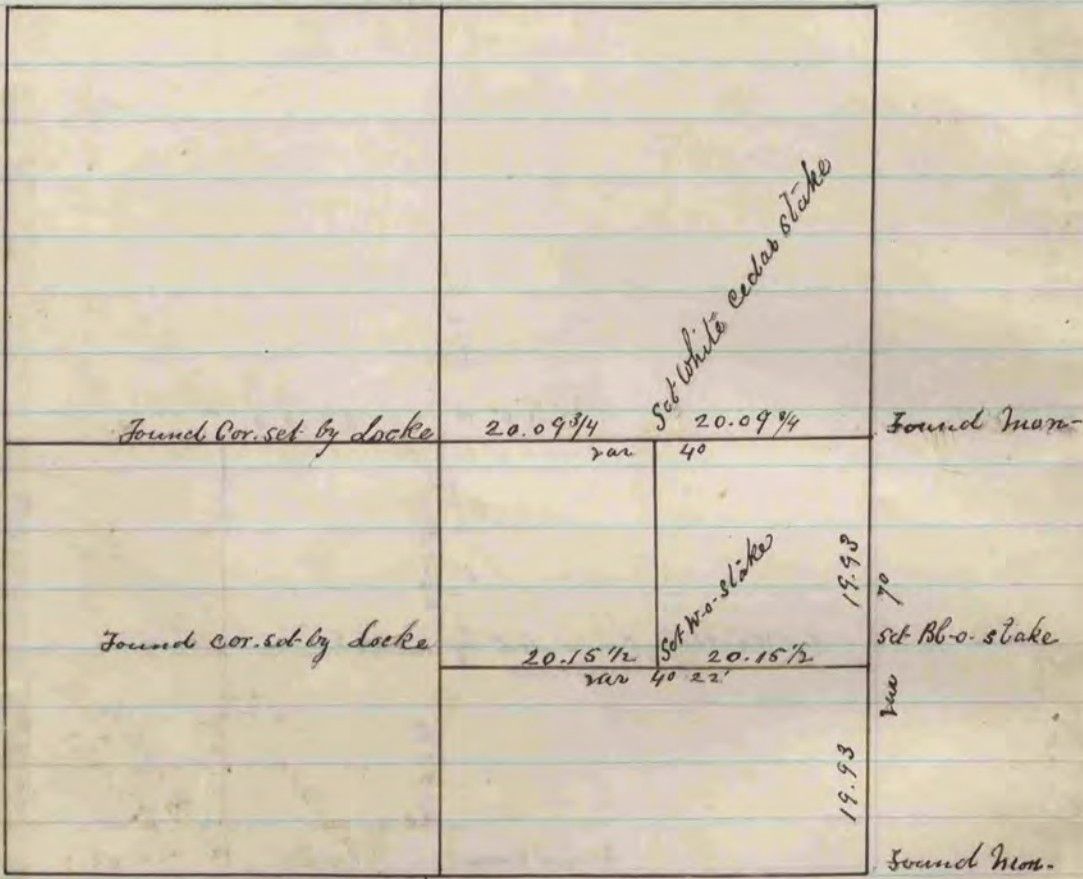 Set White cedar stake
Found Cor. set by Locke 20.09 3/4 20.09 3/4 Found Mon-
var 4°
19.93
7°
Set W-o-stake
Found cor. set by Locke 20.15 1/2 20.15 1/2 set Bl-o-stake
var 4° 22'
var
19.93
Found Mon-